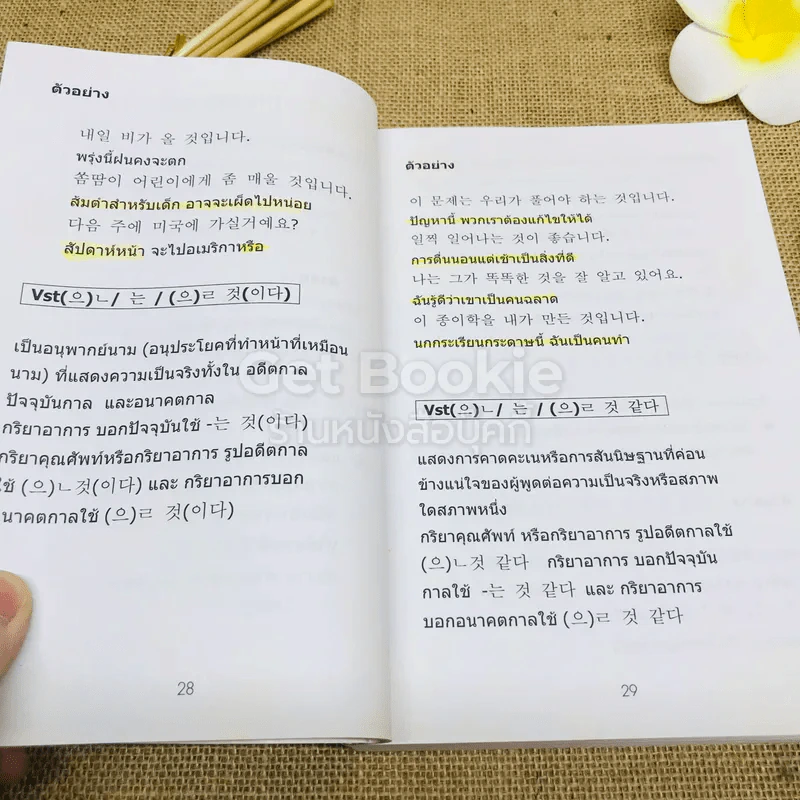 ตัวอย่าง
내일 비가 올 것입니다.
พรุ่งนี้ฝนคงจะตก
쏨땀이 어린이에게 좀 매울 것입니다.
ส้มตำสำหรับเด็ก อาจจะเผ็ดไปหน่อย
다음 주에 미국에 가실거예요?
สัปดาห์หน้า จะไปอเมริกาหรือ
Vst(으)ㄴ/ 는 / (으)ㄹ 것(이다)
เป็นอนุพากย์นาม (อนุประโยคที่ทำหน้าที่เหมือน
นาม) ที่แสดงความเป็นจริงทั้งใน อดีตกาล
ปัจจุบันกาล และอนาคตกาล
กริยาอาการ บอกปัจจุบันใช้ -는 것(이다)
กริยาคุณศัพท์หรือกริยาอาการ รูปอดีตกาล
ใช้ (으)ㄴ것(이다) และ กริยาอาการบอก
อนาคตกาลใช้ (으)ㄹ 것(이다)
28
ตัวอย่าง
이 문제는 우리가 풀어야 하는 것입니다.
ปัญหานี้ พวกเราต้องแก้ไขให้ได้
일찍 일어나는 것이 좋습니다.
การตื่นนอนแต่เช้าเป็นสิ่งที่ดี
나는 그가 똑똑한 것을 잘 알고 있어요.
ฉันรู้ดีว่าเขาเป็นคนฉลาด
이 종이학을 내가 만든 것입니다.
นกกระเรียนกระดาษนี้ ฉันเป็นคนทำ
Vst(으)ㄴ/ 는 / (으)ㄹ 것 같다
แสดงการคาดคะเนหรือการสันนิษฐานที่ค่อน
ข้างแน่ใจของผู้พูดต่อความเป็นจริงหรือสภาพ
ใดสภาพหนึ่ง
กริยาคุณศัพท์ หรือกริยาอาการ รูปอดีตกาลใช้
(으)ㄴ것 같다 กริยาอาการ บอกปัจจุบัน
กาลใช้ -는 것 같다 และ กริยาอาการ
บอกอนาคตกาลใช้ (으)ㄹ 것 같다
29
Get Bookie
ร้านหนังสือบุคกี้